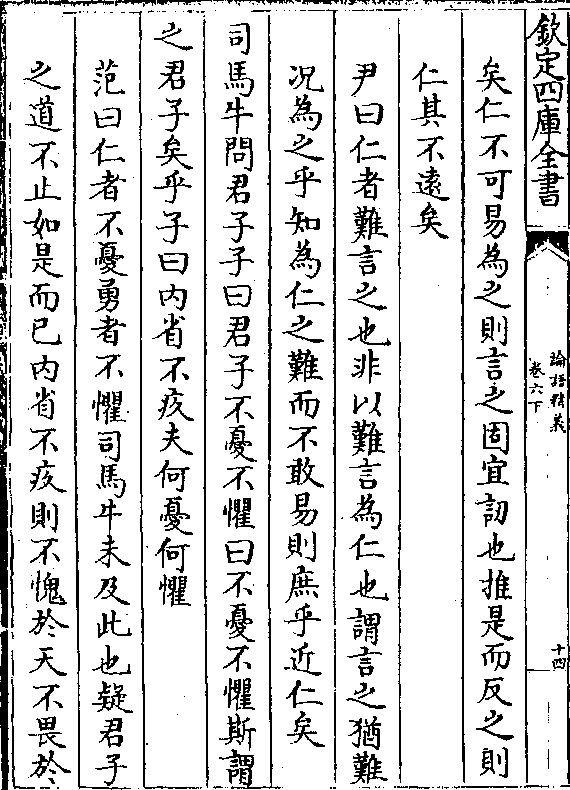 欽定四庫全書
論語精義
卷六下
十四
矣仁不可易為之則言之固宜訒也推是而反之則
仁其不逺矣
尹曰仁者難言之也非以難言為仁也謂言之猶難
况為之乎知為仁之難而不敢易則庶乎近仁矣
司馬牛問君子子曰君子不憂不懼曰不憂不懼斯謂
之君子矣乎子曰内省不疚夫何憂何懼
范曰仁者不憂勇者不懼司馬牛未及此也疑君子
之道不止如是而已内省不疚則不愧於天不畏於